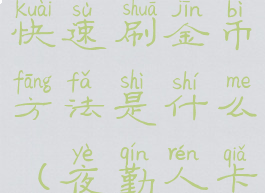 kuài sù shuā jīn bì
快速刷金币
fāng fǎ shì shí me
方法是什么
yè qín rén qiǎ
(夜勤人卡